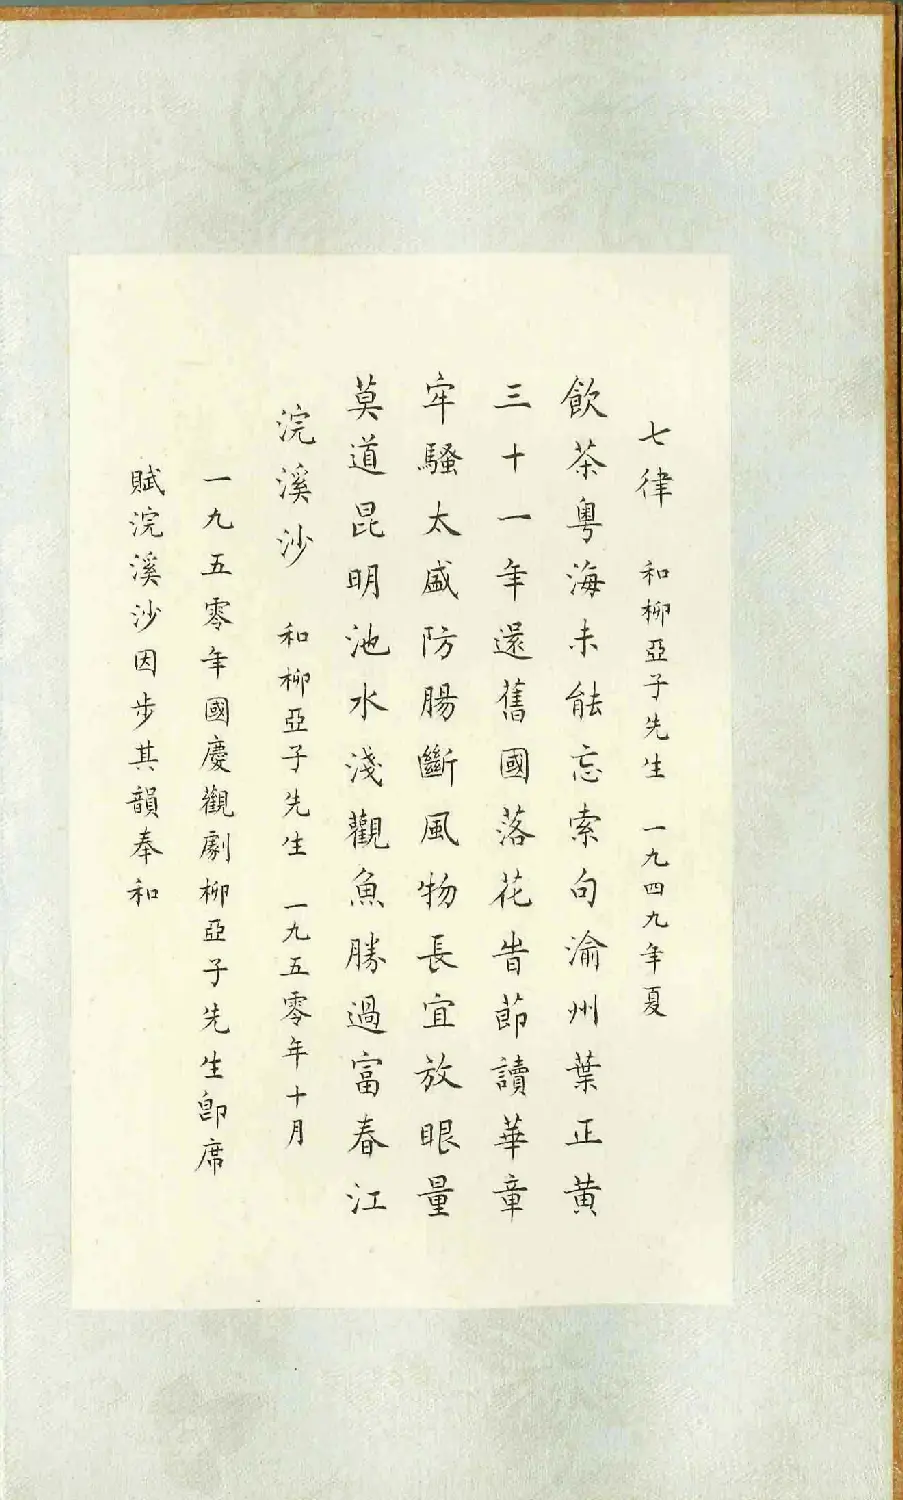 七律 和柳亞子先生 一九四九年夏
飲茶粵海未能忘索句渝州葉正黄
三十一年還舊國落花旹節讀華章
牢騷太盛防腸斷風物長宜放眼量
莫道昆明池水淺觀魚勝過富春江
浣溪沙 和柳亞子先生 一九五零年十月
一九五零年國慶觀劇柳亞子先生即席
賦浣溪沙因步其韻奉和